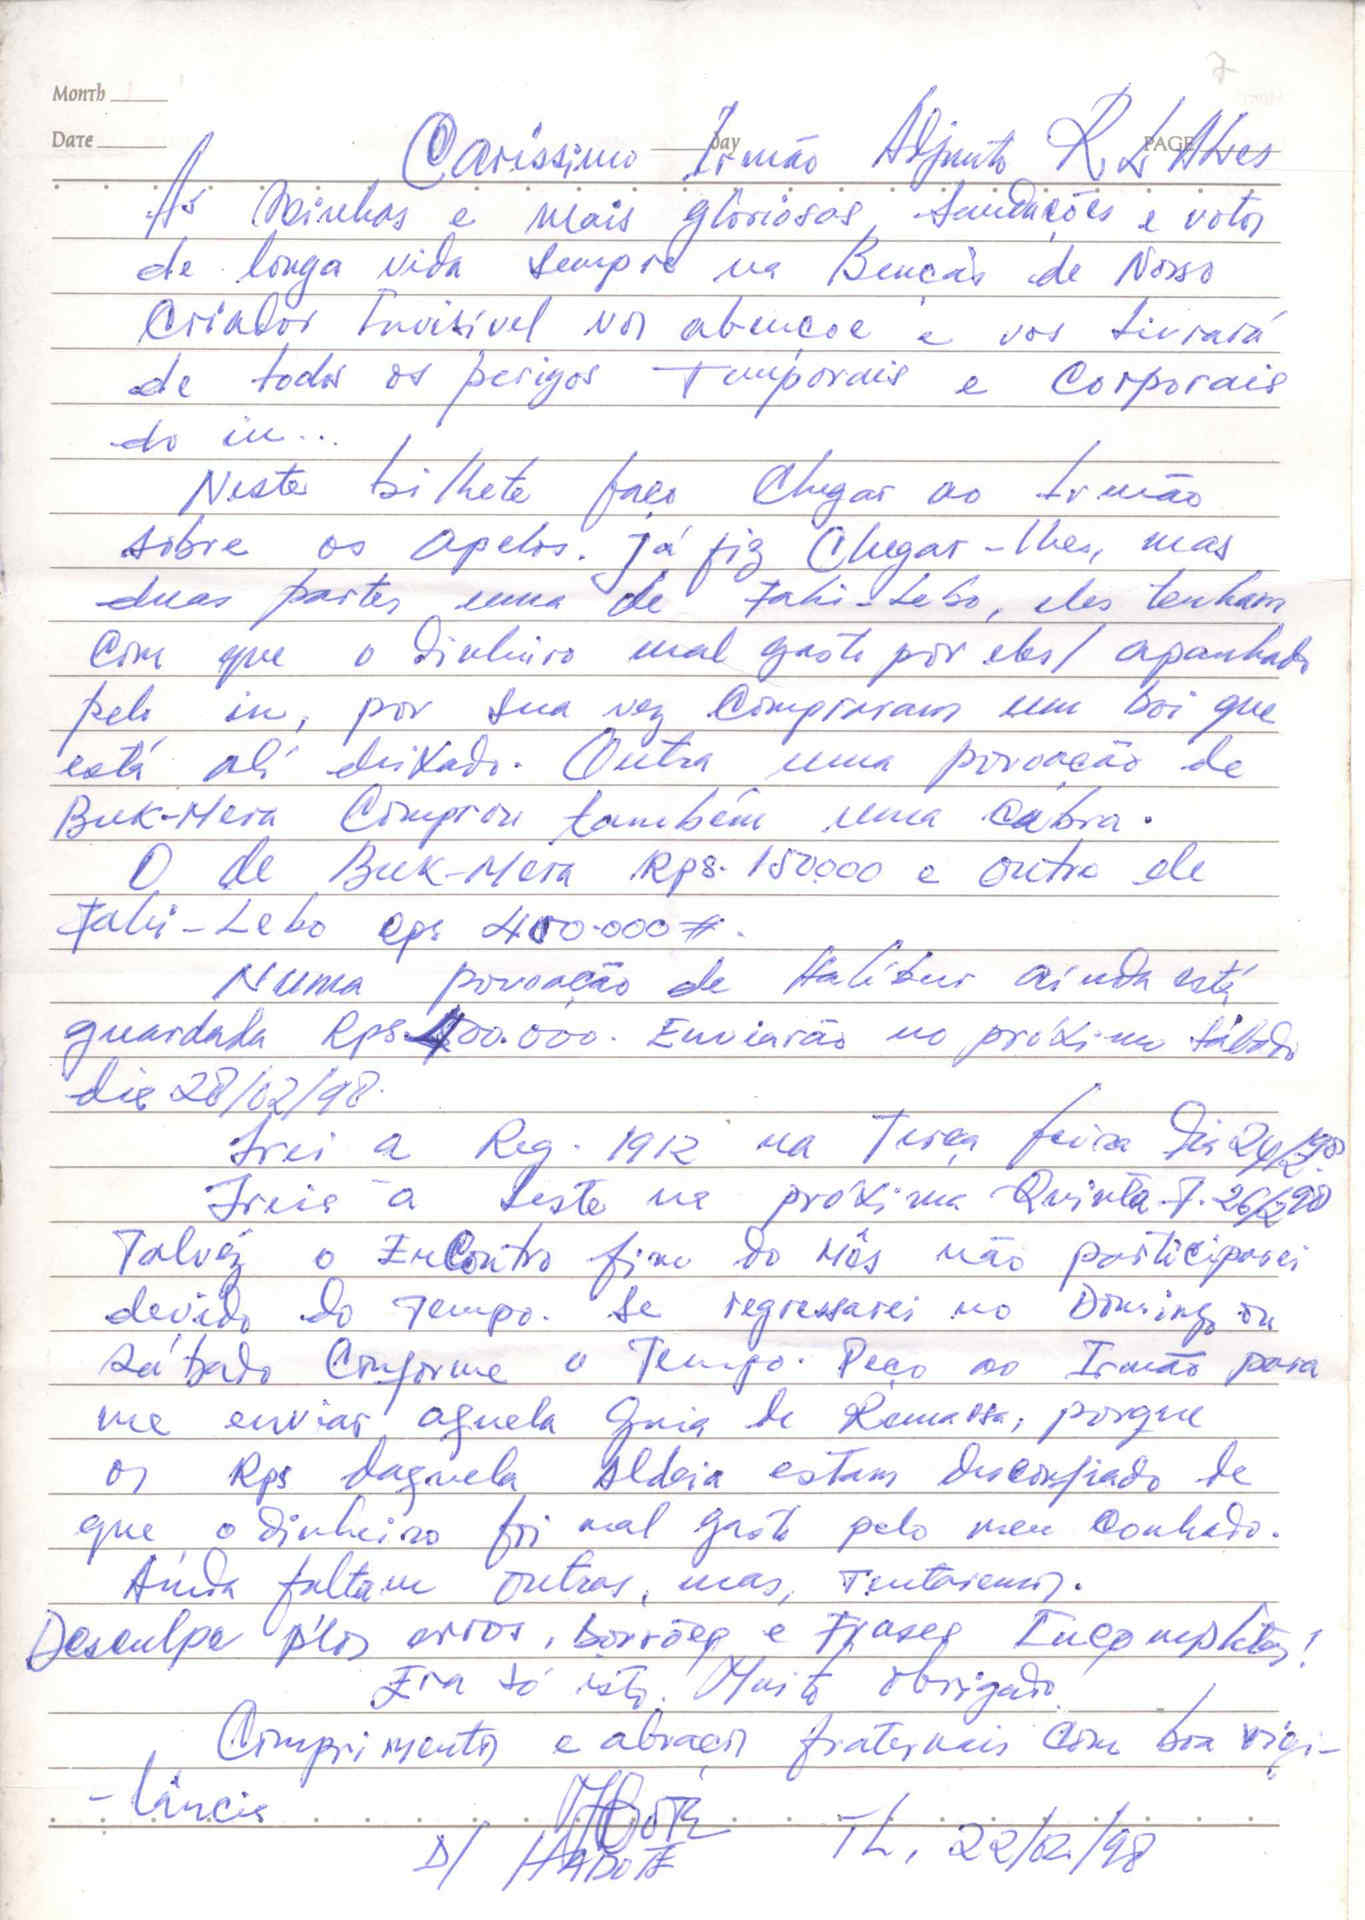 7
Month
Date
day
PAGE
Caríssimo Irmão Adjunto R. L. Alves
As Minhas e mais gloriosas saudações e votos
de longa vida sempre na Bençãs de Nosso
Criador Invisível nos abençoe e vos livrará
de todos os perigos Temporais e Corporais
do in...
Neste bilhete faço Chegar ao Irmão
sobre os apelos. Já fiz Chegar-lhes, mas
duas partes uma de Fahi-Lebo, eles tenham
com que o dinheiro mal gasto por eles/ apanhado
pelo in, por sua vez Compraram um boi que
está alí deixado. Outra uma povoação de
Buk-Mera Comprou também uma cabra.
O de Buk-Mera Rps. 150000 e outro de
Fahi-Lebo rps 400.000#.
Numa povoação de Halibur ainda está
guardada Rps.400.000. Enviarão no próximo Sábado
dia 28/02/98.
Irei a Reg. 1912 na Terça feira Dia 24/2/98.
Ireis a Leste na próxima Quinta-F. 26/2/98
Talvéz o Encontro fim do Mês não participarei
devido do Tempo. Se regressarei no Domingo ou
Sábado Conforme o Tempo. Peço ao Irmão para
me enviar aquela Guia de Remassa, porque
os Rps daquela Aldeia estam desconfiado de
que o dinheiro foi mal gasto pelo meu conhado.
Ainda faltam outras, mas, Tentaremos.
Desculpe p'los erros, Borrões e Frases Incompletas!
Era só isto. Muito obrigado
Comprimentos e abraços fraternais com boa vigi-
-lância
D/ HADOTE
TL, 22/02/98